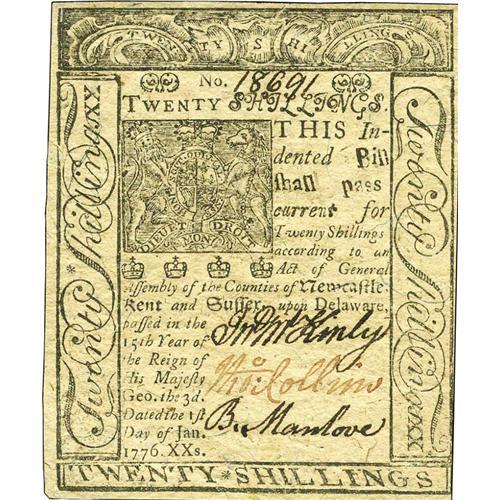 TWENTY SHILLINGS
No. 18691
TWENTY SHILLINGS.
THIS In-
dented Bill
shall pass
current for
Twenty Shillings
according to an
Act of General
Assembly of the Counties of Newcastle
Kent and Sussex, upon Delaware,
passed in the
15th Year of
the Reign of
His Majesty
Geo. the 3d.
Dated the 1st
Day of Jan.
1776. XXs.
DIEU ET DROIT
MON
Jno McKinly
Thos Collins
B. Manlove
Twenty Shillings XX
Twenty Shillings XX
TWENTY*SHILLINGS